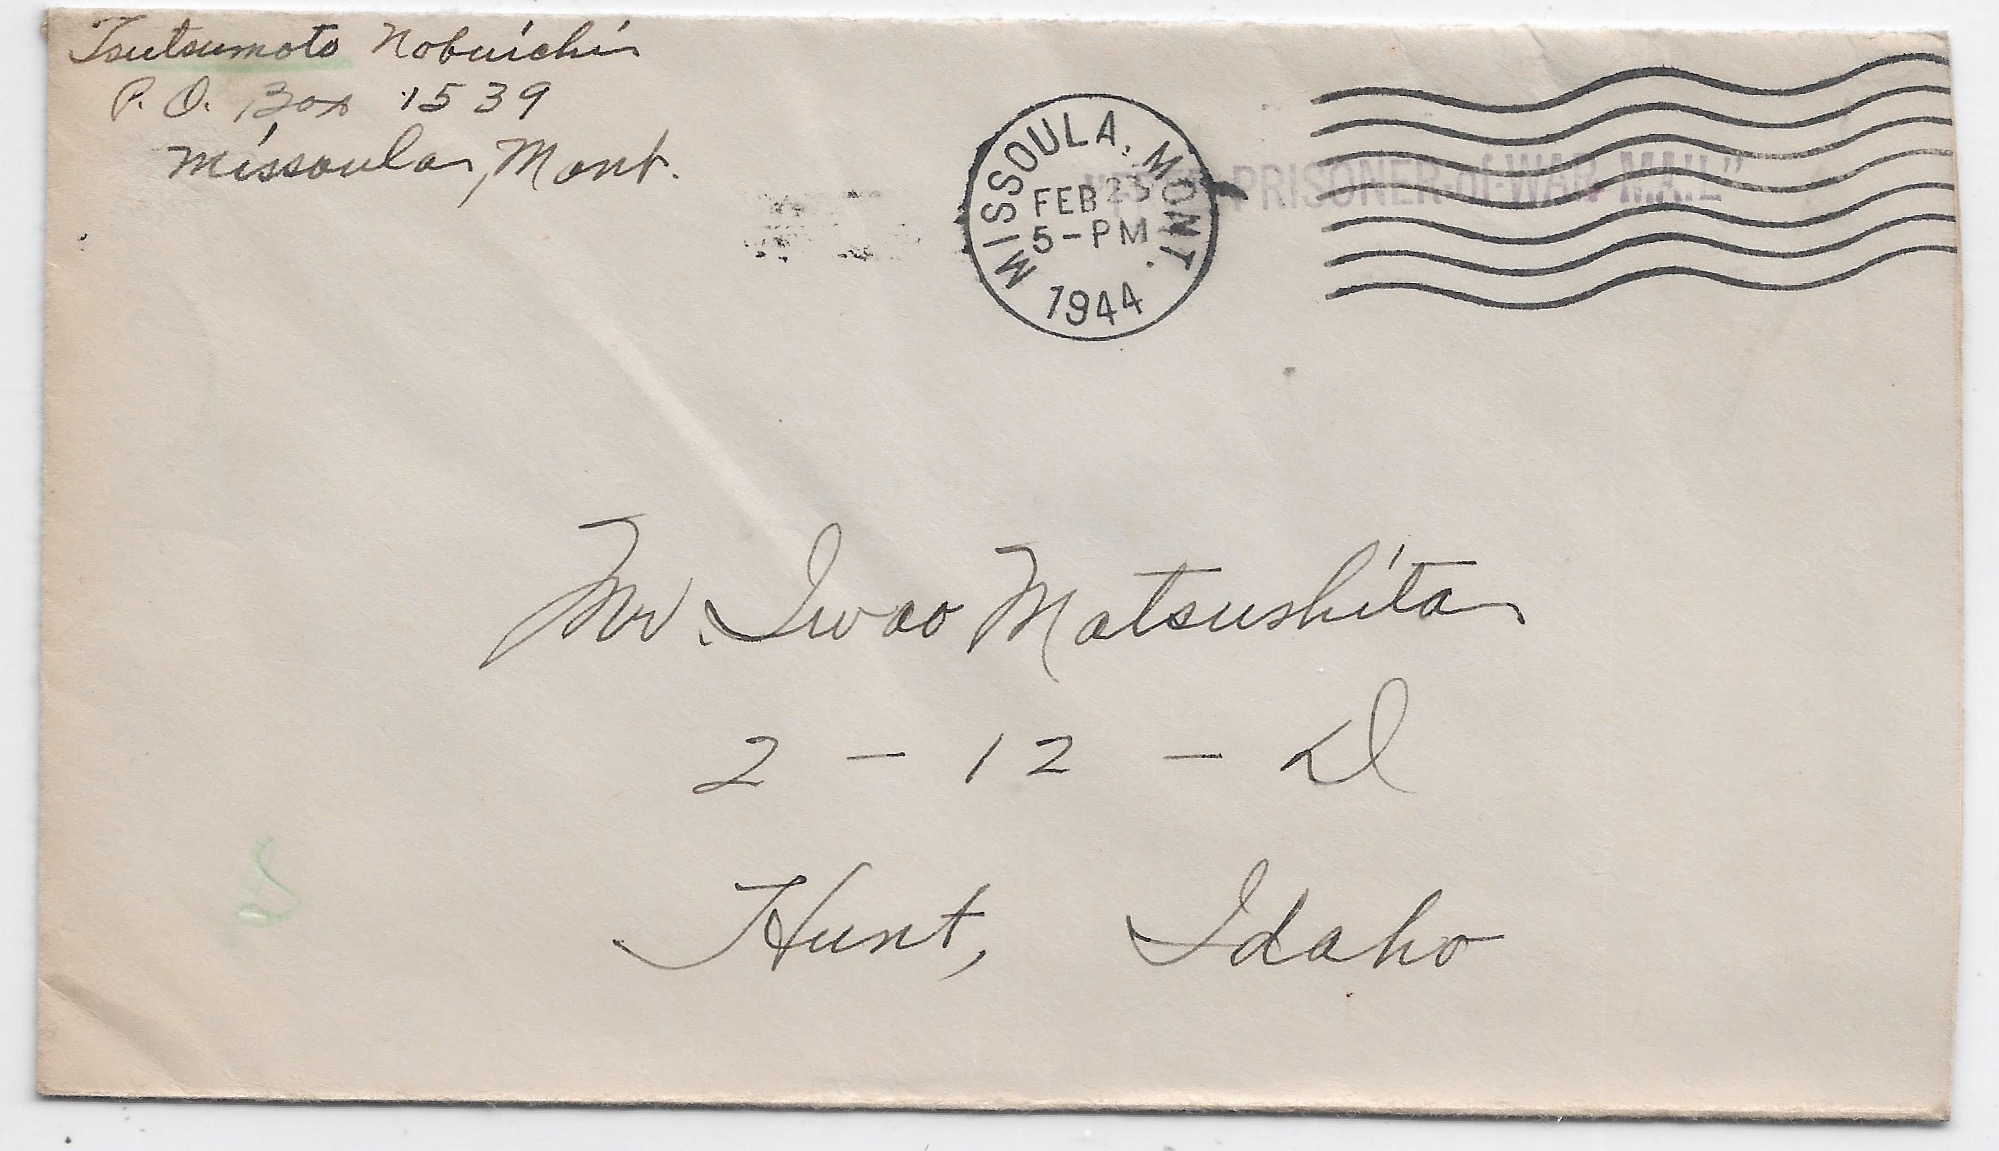 Tsutsumoto Nobuichi
P. O. Box 1539
Missoula, Mont.
MISSOULA, MONT.
FEB 23
5-PM
1944
PRISONER of WAR MAIL"
Mr. Iwao Matsushita
2 - 12 - D
Hunt, Idaho